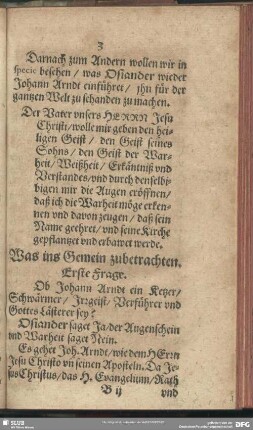 3
Darnach zum Andern wollen wir in
specie besehen / was Osiander wieder
Johann Arndt einführet / jhn für der
gantzen Welt zu schanden zu machen.
Der Vater vnsers HERRN Jesu
Christi / wolle mir geben den hei-
ligen Geist / den Geist seines
Sohns / den Geist der War-
heit / Weißheit / Erkäntniß vnd
Verstandes / vnd durch denselbi-
bigen mir die Augen eröffnen /
daß ich die Warheit möge erken-
nen vnd davon zeugen / daß sein
Name geehret / vnd seine Kirche
gepflantzet vnd erbawet werde.
Was ins Gemein zubetrachten.
Erste Frage.
Ob Johann Arndt ein Ketzer /
Schwärmer / Irrgeist / Verführer vnd
Gottes Lästerer sey?
Osiander saget Ja / der Augenschein
vnd Warheit saget Nein.
Es gehet Joh. Arndt / wie dem HErrn
Jesu Christo vn seinen Aposteln. Da Je-
sus Christus / das H. Evangelium / Rath
B ij
vnd
SLUB
DFG